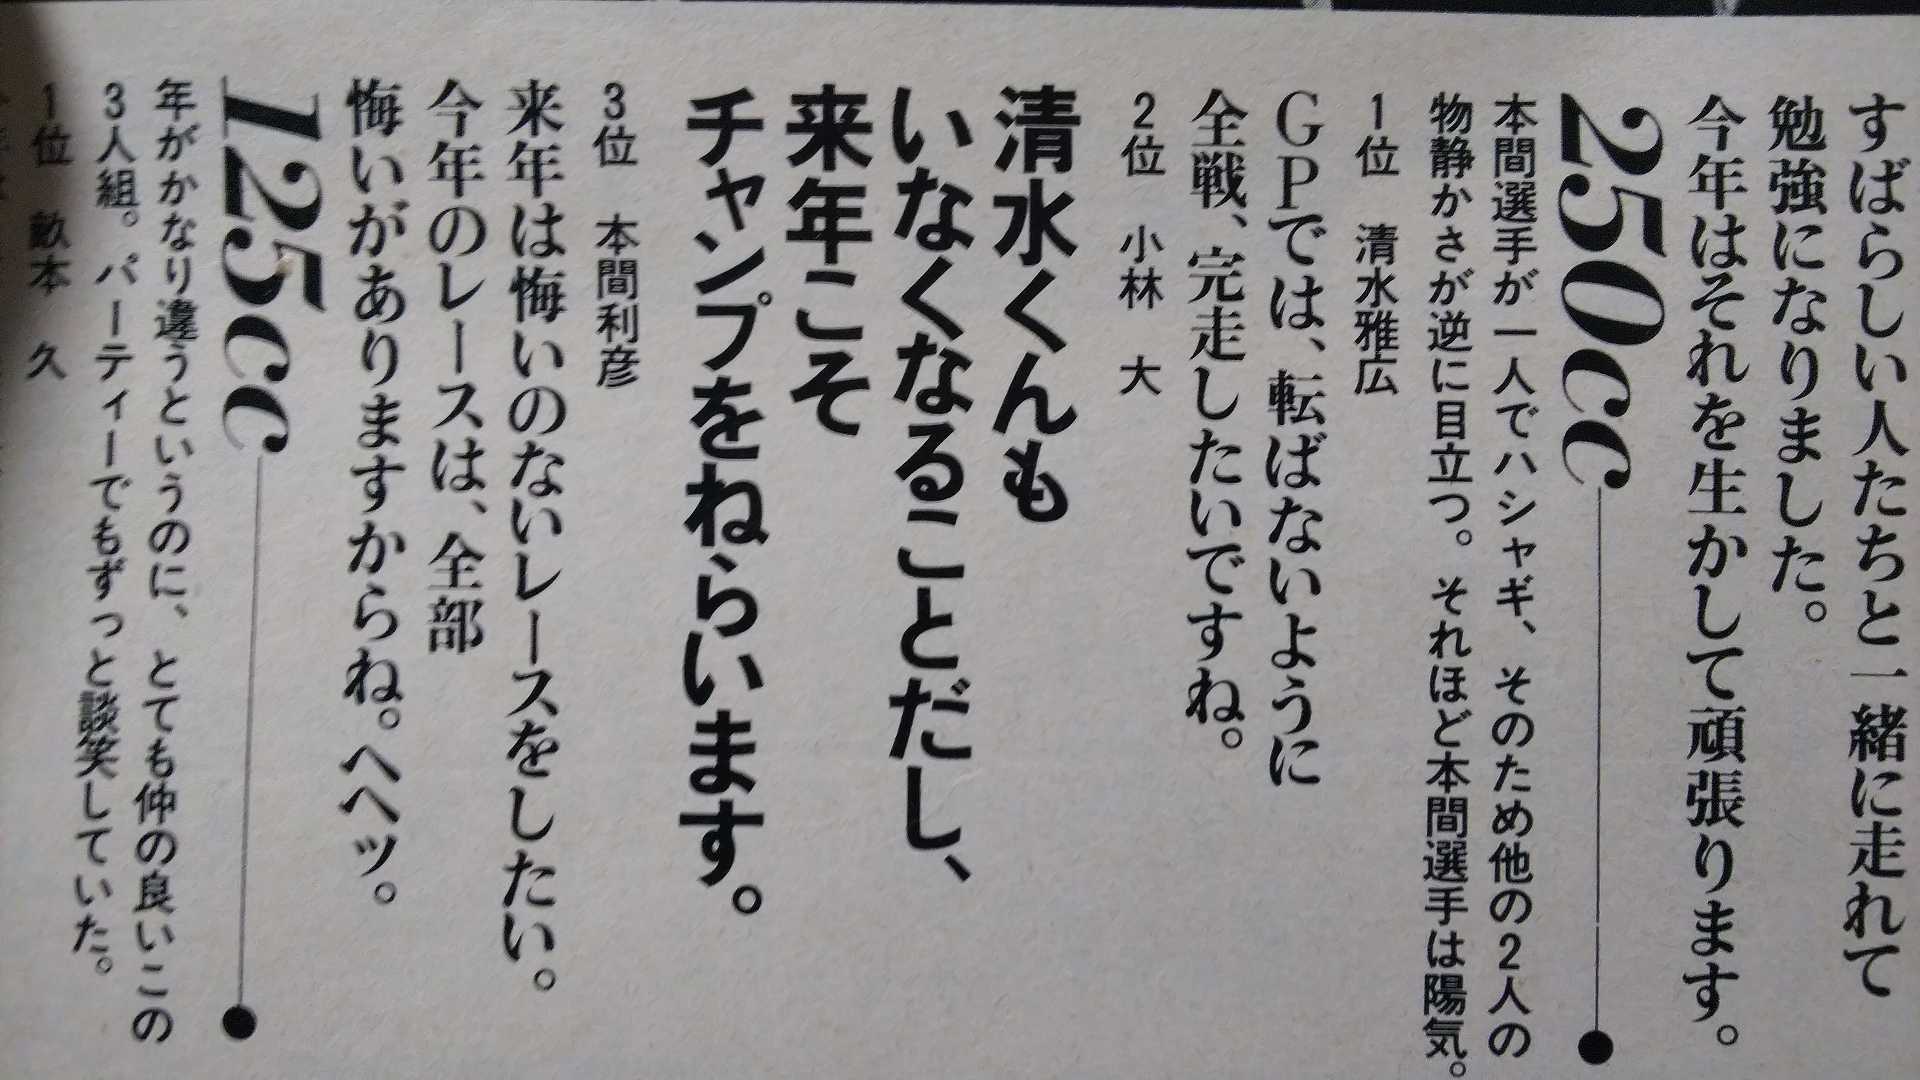 すばらしい人たちと一緒に走れて
勉強になりました。
今年はそれを生かして頑張ります。
250cc
本間選手が一人でハシャギ、そのため他の2人の
物静かさが逆に目立つ。それほど本間選手は陽気。
1位 清水雅広
GPでは、転ばないように
全戦、完走したいですね。
2位 小林 大
清水くんも
いなくなることだし、
来年こそ
チャンプをねらいます。
3位 本間利彦
来年は悔いのないレースをしたい。
今年のレースは、全部
悔いがありますからね。へヘッ。
125cc
年がかなり違うというのに、とても仲の良いこの
3人組。パーティーでもずっと談笑していた。
1位 畝本 久